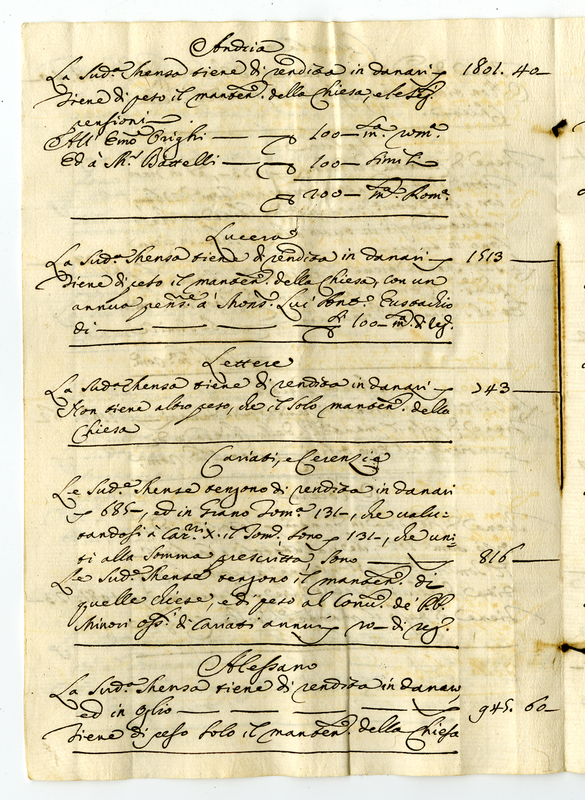 Andria
La Sud.ª Mensa tiene di rendita in danari 1801. 40—
Tiene di peso il manten.º della Chiesa, e le seg.ti
pensioni—
All' Emo Orighi — — 100— m.ta rom.ª
Ed à Mr. Battelli — — 100— simile
200— m.ta Rom.ª
Lucera
La Sud.ª Mensa tiene di rendita in danari 1513 —
Tiene di peso il manten.º della Chiesa, con un
annua pens.ne à Mons.r Eustachio
di — — — — 100— m.ta di reg.
Lettere
La Sud.ª Mensa tiene di rendita in danari 343 —
Non tiene altro peso, che il solo manten.º della
Chiesa
Cariati, e Cerenzia
Le Sud.e Mense tengono di rendita in danari
685—, ed in Grano Tom.ª 131—, che valu-
tandosi à Car.ni X. il Tom.º sono 131—, che uni-
ti alla somma prescritta, sono — 816 —
Le Sud.e Mense tengono il manten.º di
quelle chiese, e di peso al Conv.º de' PP.
Minori Oss.ti di Cariati annui 20— di reg.
Alessano
La Sud.ª Mensa tiene di rendita in danari
ed in oglio — — — — 945. 60—
Tiene di peso solo il manten.º della Chiesa